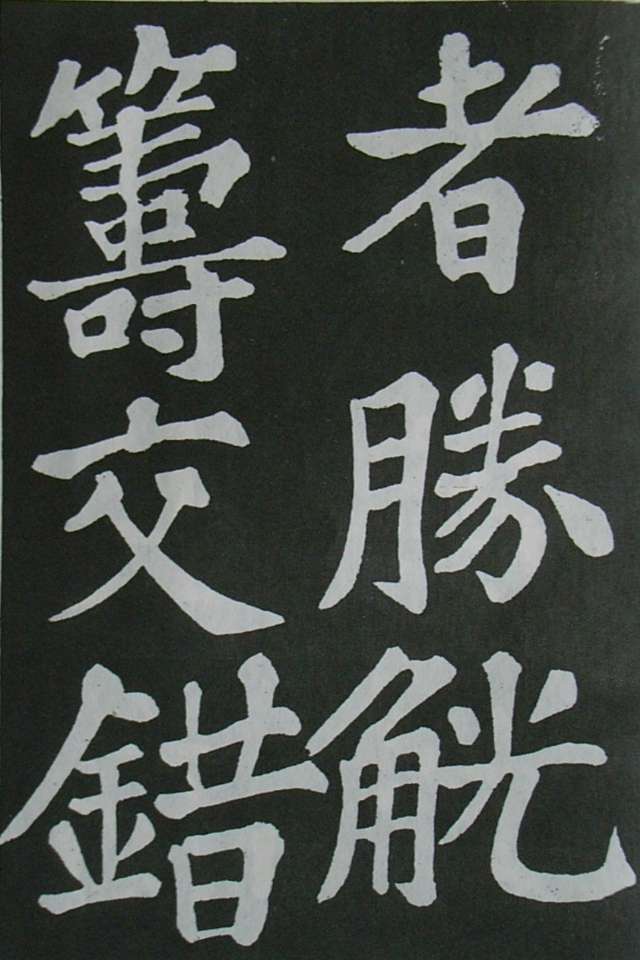 者勝觥
籌交錯